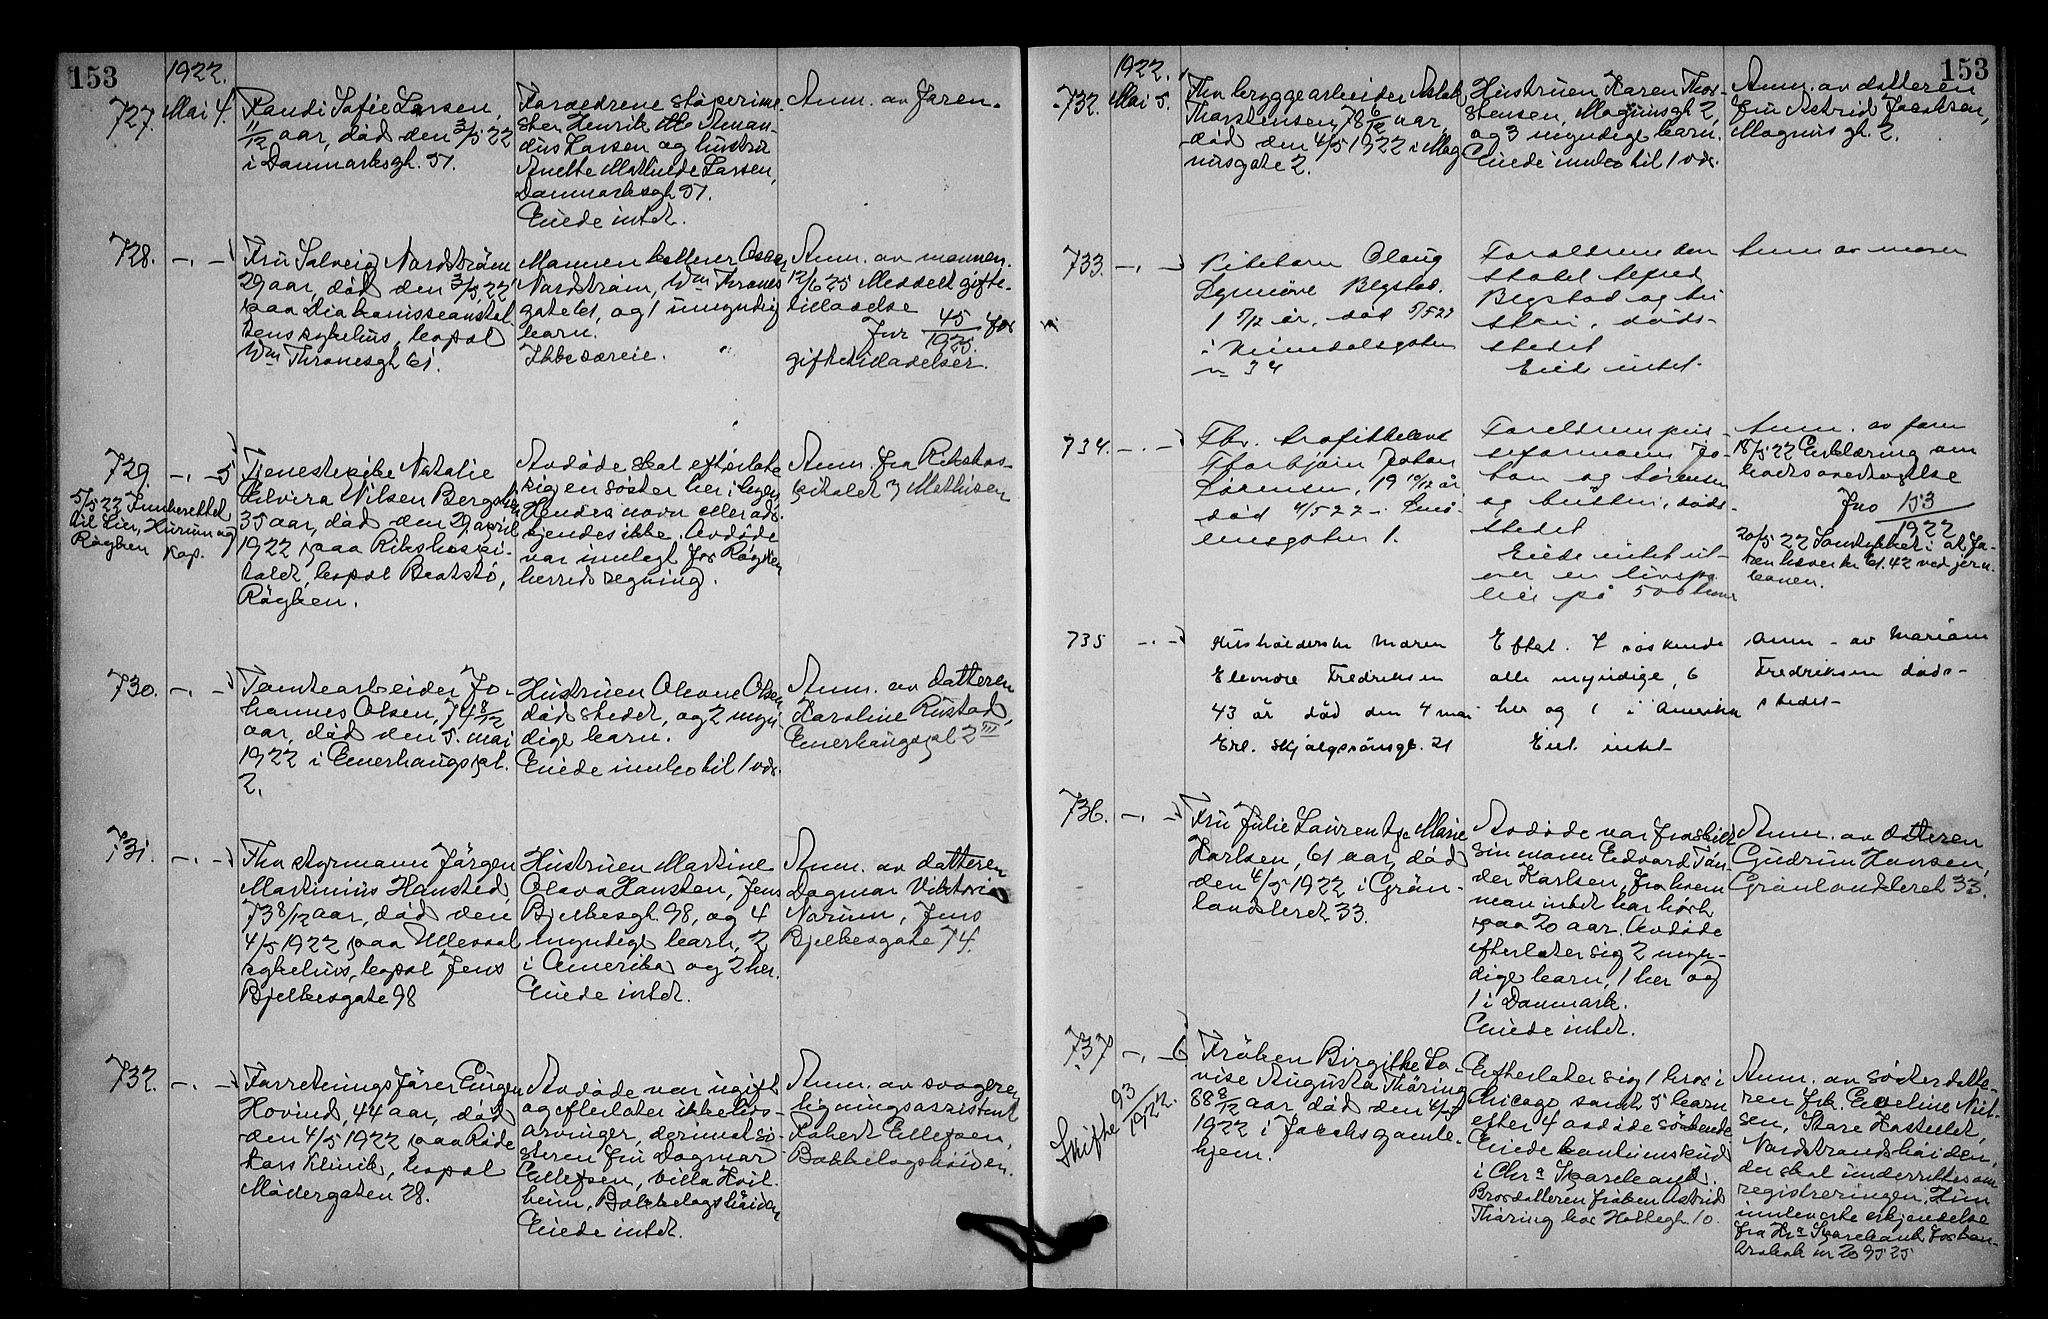 153
1922.
727. Mai 4.
Randi Sofie Larsen,
11/12 aar, død den 3/5 22
i Danmarksgt. 51.
Forældrene støperime-
ster Henrik Aman-
dus Larsen og hustru
Anette Mathilde Larsen,
Danmarksgt 51.
Eiede intet.
Anm. av faren.
728. -.-
Fru Solveig Nordström
29 aar, død den 3/5 22
paa Diakonisseanstal-
tens sykehus, bopæl
Wm Thranesgt 61.
Mannen kelner Oscar
Nordström, Wm Thranes
gate 61, og 1 umyndig
barn.
Ikke særeie.
Anm. av mannen.
12/6 25 Meddelt gifte-
tilladelse
Jnr 45/1925 for
giftetilladelser.
729. -.- 5
5/5 22 Innberettet
til Lier, Hurum og
Røyken sop.
Tjenestepike Natalie
Elvera Nilsen Bergsten
35 aar, død den 29 april
1922 paa Rikshospi-
talet, bopæl Bratstø,
Røyken.
Avdøde skal efterlate
sig en søster her i byen
Hendes navn eller adr.
kjendes ikke. Avdøde
var innlagt for Røyken
herreds regning.
Anm. fra Rikshos-
pitalet v Mathisen
730. -.-
Tomtearbeider Jo-
hannes Olsen, 74 8/12
aar, død den 5. mai
1922 i Enerhaugspl.
2.
Hustruen Oleane Olsen
dødsstedet, og 2 myn-
dige barn.
Eiede innbo til 1 vær.
Anm. av datteren
Karoline Rustad,
Enerhaugspl 2 III
731. -.-
Fhv styrmann Jørgen
Martinius Hansted,
73 8/12 aar, død den
4/5 1922 paa Ullevaal
sykehus, bopæl Jens
Bjelkesgate 98
Hustruen Martine
Olava Hansten, Jens
Bjelkesgt. 98, og 4
myndige barn, 2
i Amerika og 2 her.
Eiede intet.
Anm. av datteren
Dagmar Viktoria
Norum, Jens
Bjelkesgate 74.
732. -.-
Forretningsfører Eugen
Hovind, 44 aar, død
den 4/5 1922 paa Røde
Kors Klinik, bopæl
Møllergaten 28.
Avdøde var ugift
og efterlater ikke livs-
arvinger, derimot sø-
steren fru Dagmar
Ellefsen, villa Hvil-
heim, Bækkelagshøiden
Eiede intet.
Anm. av svogeren
ligningsassistent
Robert Ellefsen,
Bækkelagshøiden.
153
1922.
732. Mai 5.
Fhv bryggearbeider Aslak
Thorstensen, 78 6/12 aar,
død den 4/5 1922 i Mag-
nusgate 2.
Hustruen Karen Thor-
stensen, Magnusgt 2,
og 3 myndige barn.
Eiede innbo til 1 vær.
Anm. av datteren
fru Astrid Jacobsen,
Magnusgt. 2.
733. -.-
Pikebarn Olaug
Synnöve Begstad.
1 5/12 år, død 5/5 22
i Heimdalsgaten
nr 34
Foreldrene
Alfred
Begstad og hu-
struen, døds-
stedet
Eiede intet.
Anm av moren
734. -.-
Fhv.
Thorbjørn Johan
Sørensen, 19 10/12 år
død 4/5 22 i Smö-
lensgaten 1.
Foreldrene
formann Jo-
han Sørensen
og hustru, døds-
stedet
Eiede intet ut-
over en livspo-
lice på 500 kroner
Anm. av faren
18/5 22 Erklæring om
bodsovertagelse
Jno 153/1922
20/5 22 Samtykket i at fa-
ren hæver kr 61.42 ved jern-
banen.
735 -.-
Husholderske Maren
Eleonore Fredriksen
43 år død den 4 mai
Erl. Skjalgssønsgt. 21
Eftel. 7 søskende
alle myndige, 6
her og 1 i Amerika
Eiet intet
Anm. av Mariane
Fredriksen døds-
stedet
736. -.-
Fru Julie Laurentze Marie
Karlsen, 61 aar, død
den 4/5 1922 i Grøn-
landsleret 33.
Avdøde var fraskilt
sin mann Edvard
Karlsen, fra hvem
man intet har hørt
paa 20 aar. Avdøde
efterlater sig 2 myn-
dige barn, 1 her og
1 i Danmark.
Eiede intet.
Anm. av datteren
Gudrun Hansen,
Grønlandsleret 33.
737 -.- 6
Skifte 93/1922.
Frøken Birgitte Lo-
vise Augusta Thøring
88 8/12 aar, død den 4/5
1922 i Jacobs gamle-
hjem.
Efterlater sig 1 bror i
Chicago samt 5 barn
efter 4 avdøde søskende
Eiede bankinnskud
i Chr.a Sparebank.
Brordatteren frøken Astrid
Thøring bor Holtegt. 10.
Anm. av søsterdatte-
ren frk. Eveline Niel-
sen, Skare Kastellet,
Nordstrandshøiden,
der skal underrettes om
registreringen. Hun
innleverte erkjendelse
fra Kr.a Sparebank for ban-
kbok nr 20 95 25